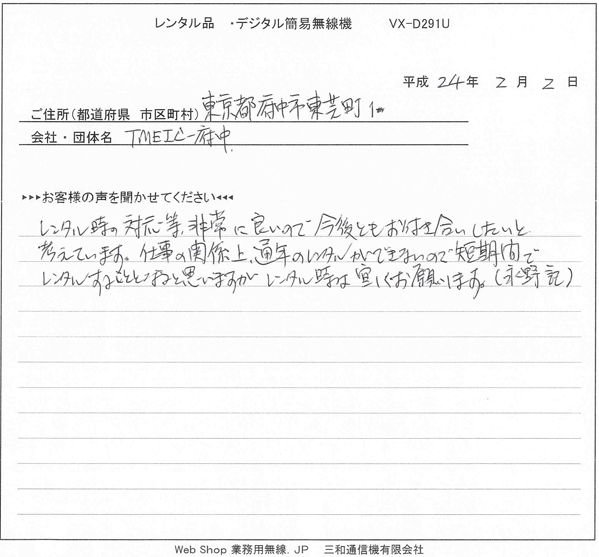 レンタル品 ・デジタル簡易無線機 VX-D291U
平成 24 年 2 月 2 日
ご住所(都道府県 市区町村) 東京都府中市東芝町1
会社・団体名 TMEIC 府中
▸▸▸お客様の声を聞かせてください◂◂◂
レンタル時の対応等、非常に良いので今後ともお付き合いしたいと
考えています。仕事の関係上、通年のレンタルができないので短期間で
レンタルすることとなると思いますがレンタル時は宜しくお願いします。(永野記)
Web Shop 業務用無線.JP 三和通信機有限会社